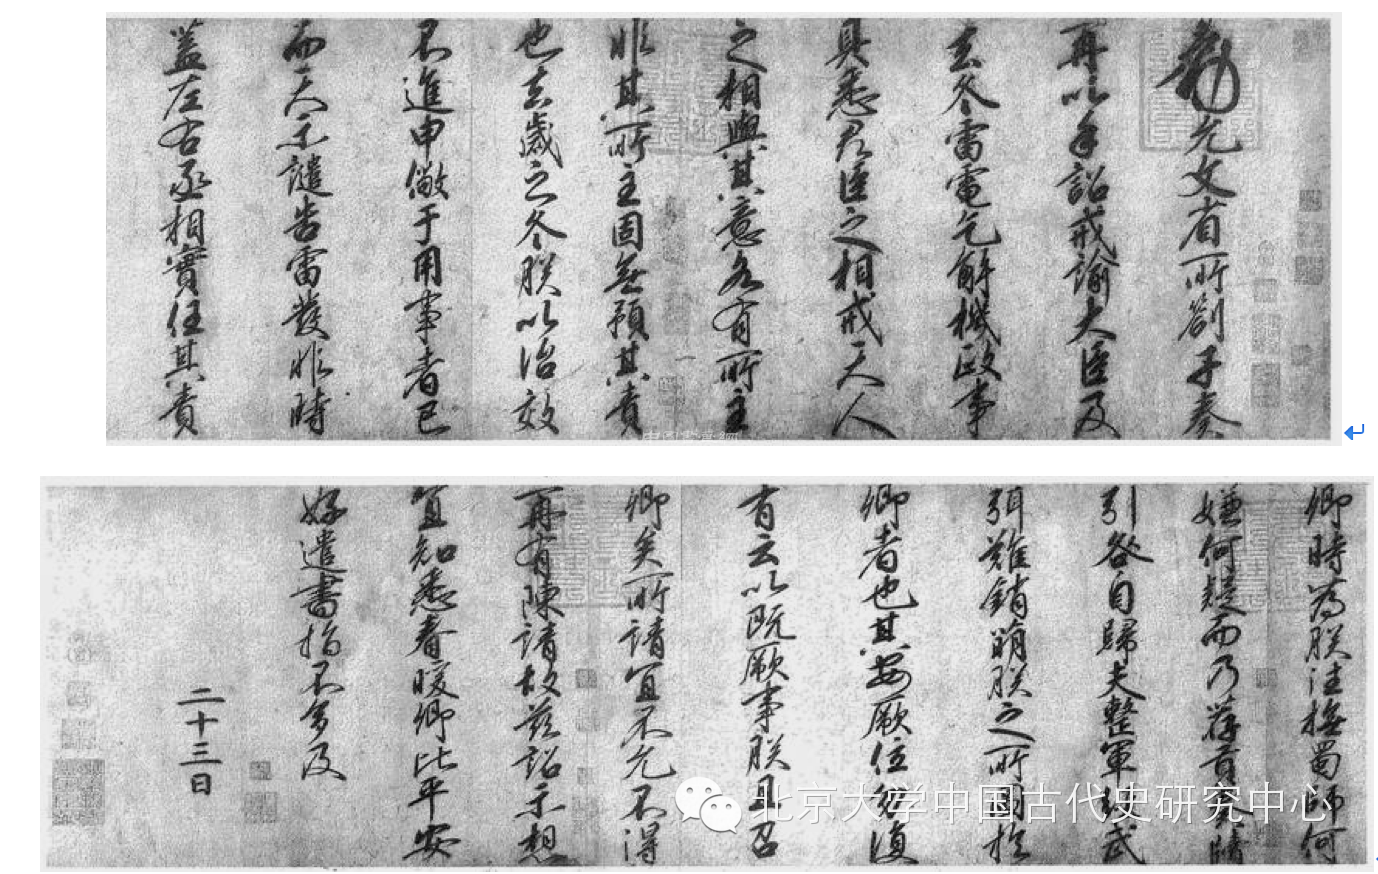 勑允文省所劄子奏
再以手詔戒諭大臣及
去冬雷電乞解機政事
具悉君臣之相戒天人
之相與其意各有所主
非其所主固無預其責
也去歲之冬朕以治效
不進申儆于用事者已
而天示譴告雷發非時
蓋左右丞相實任其責
卿時為朕往撫蜀師何
嫌何疑而乃荐貢牘
引咎自歸夫整軍經武
弭難銷萌朕之所圖於
卿者也其安厥位復
有云以既厥事朕且召
卿矣所請宜不允不得
再有陳請故茲詔示想
宜知悉春暖卿比平安
好遣書指不多及
二十三日
北京大学中国古代史研究中心